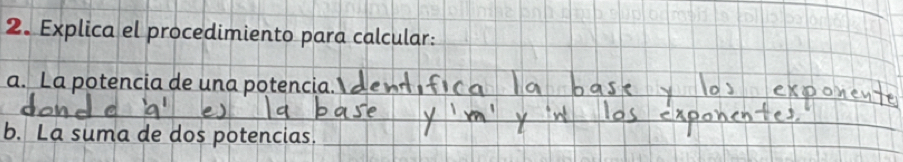 2. Explica el procedimiento para calcular:
a. La potencia de una potencia. Identifica la base y los exponente
donde 'a' es la base y 'm' y 'n' los exponentes.
b. La suma de dos potencias.